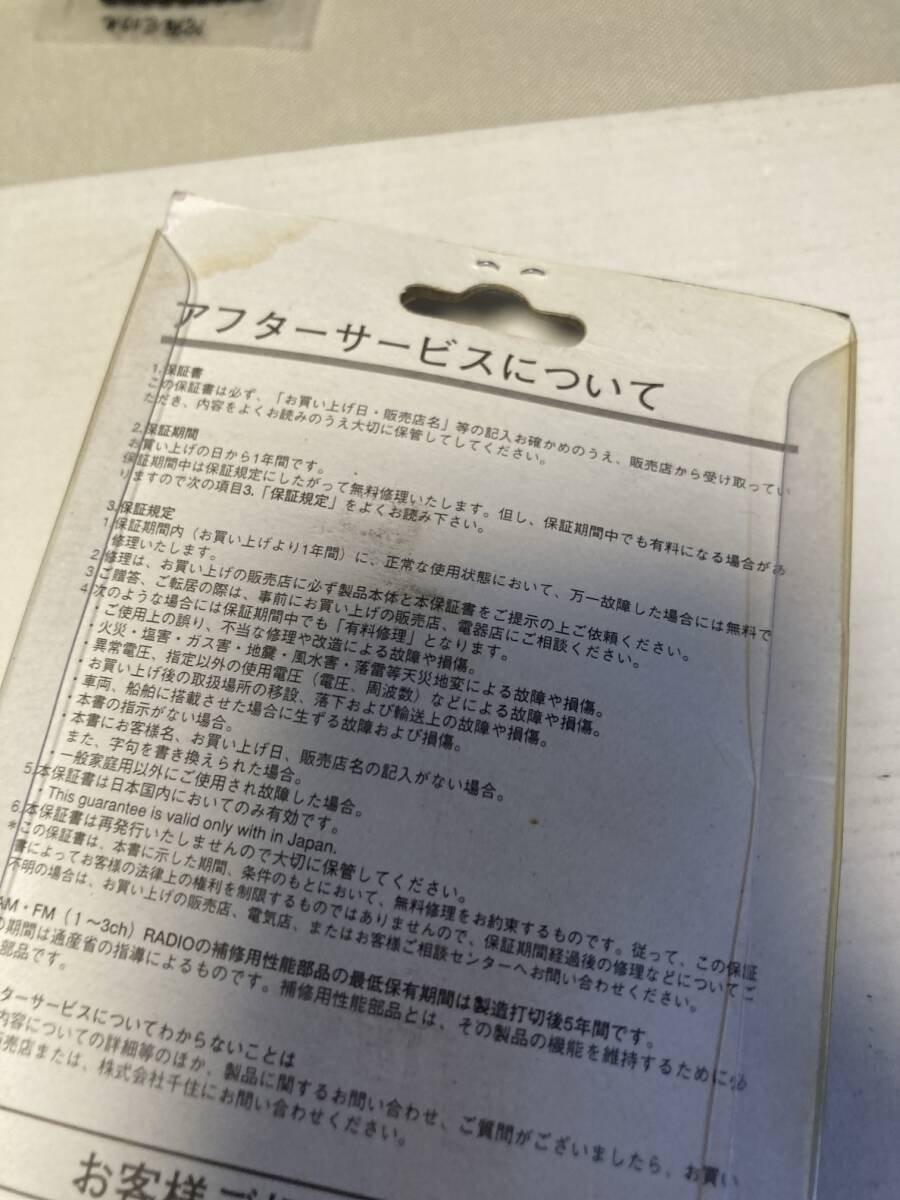 アフターサービスについて
1.保証書
この保証書は必ず、「お買い上げ日・販売店名」等の記入お確かめのうえ、販売店から受け取ってい
ただき、内容をよくお読みのうえ大切に保管してしてください。
2.保証期間
お買い上げの日から1年間です。
保証期間中は保証規定にしたがって無料修理いたします。但し、保証期間中でも有料になる場合があ
りますので次の項目3.「保証規定」をよくお読み下さい。
3.保証規定
1.保証期間内（お買い上げより1年間）に、正常な使用状態において、万一故障した場合には無料で
修理いたします。
2.修理は、お買い上げの販売店に必ず製品本体と本保証書をご提示の上ご依頼ください。
3.ご贈答、ご転居の際は、事前にお買い上げの販売店、電器店にご相談ください。
4.次のような場合には保証期間中でも「有料修理」となります。
・ご使用上の誤り、不当な修理や改造による故障や損傷。
・火災・塩害・ガス害・地震・風水害・落雷等天災地変による故障や損傷。
異常電圧、指定以外の使用電圧（電圧、周波数）などによる故障や損傷。
・お買い上げ後の取扱場所の移設、落下および輸送上の故障や損傷。
・車両、船舶に搭載させた場合に生ずる故障および損傷。
・本書の指示がない場合。
・本書にお客様名、お買い上げ日、販売店名の記入がない場合。
また、字句を書き換えられた場合。
・一般家庭用以外にご使用され故障した場合。
5.本保証書は日本国内においてのみ有効です。
・This guarantee is valid only with in Japan.
6.本保証書は再発行いたしませんので大切に保管してください。
*この保証書は、本書に示した期間、条件のもとにおいて、無料修理をお約束するものです。従って、この保証
書によってお客様の法律上の権利を制限するものではありませんので、保証期間経過後の修理などについてご
不明の場合は、お買い上げの販売店、電気店、またはお客様ご相談センターへお問い合わせください。
AM・FM（1～3ch）RADIOの補修用性能部品の最低保有期間は製造打切後5年間です。
の期間は通産省の指導によるものです。補修用性能部品とは、その製品の機能を維持するために必
部品です。
ターサービスについてわからないことは
内容についての詳細等のほか、製品に関するお問い合わせ、ご質問がございましたら、お買い
販売店または、株式会社千住にお問い合わせください。
お客様ご